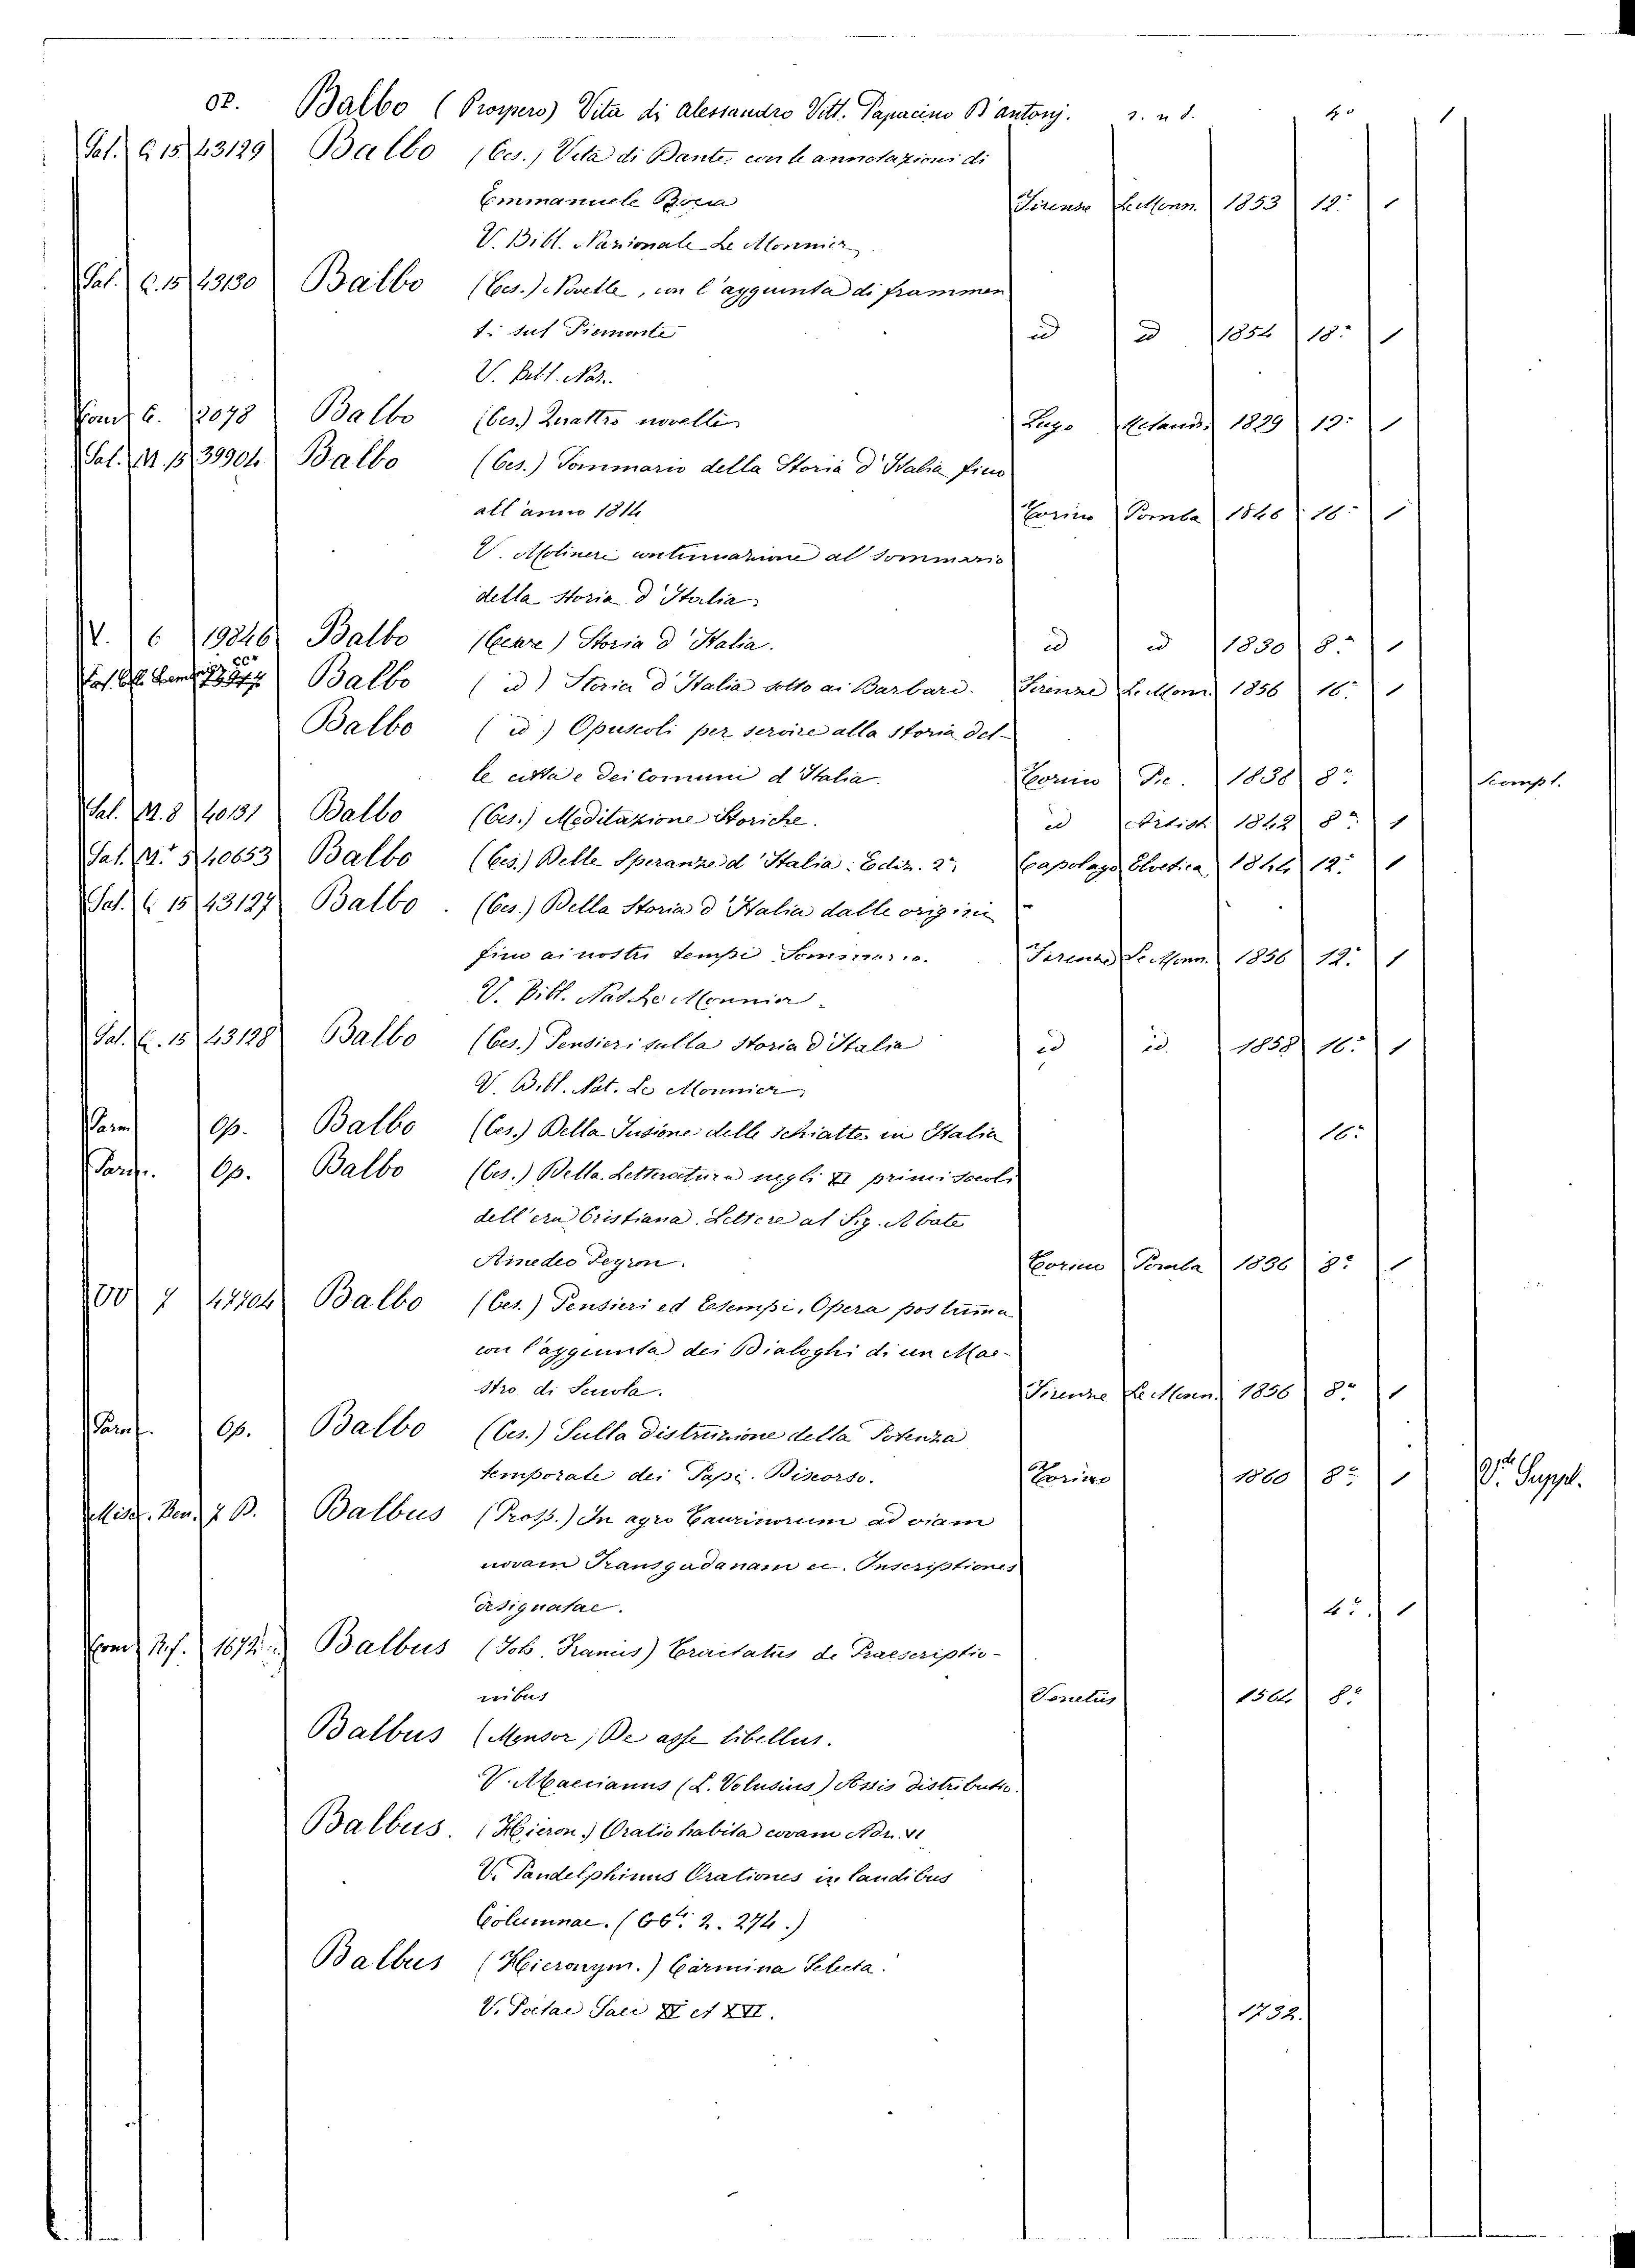 OP. Balbo (Prospero) Vita di Alessandro Vitt. Papacino D'antonj. s. n. d. 4° 1
Sal. C. 15. 43129 Balbo (Ces.) Vita di Dante con le annotazioni di
Emmanuele Rocco Firenze Le Monn. 1853 12° 1
V. Bibl. Nazionale Le Monnier.
Sal. C. 15 43130 Balbo (Ces.) Novelle, con l'aggiunta di frammen
ti sul Piemonte id id 1854 18° 1
V. Bibl. Naz.
6. 12078 Balbo (Ces.) Quattro novelle Lugo Meland. 1829 12° 1
Sal. M. 15 39904 Balbo (Ces.) Sommario della Storia d'Italia fino
all'anno 1814 Torino Pomba 1846 16° 1
V. Molineri continuazione al Sommario
della storia d'Italia
V. 6 19846 Balbo (Cesare) Storia d'Italia. id id 1830 8° 1
Balbo (id) Storia d'Italia sotto ai Barbari. Firenze Le Monn. 1856 16° 1
Balbo (id) Opuscoli per servire alla storia del-
le citta e dei Comuni d'Italia. Torino Pic. 1838 8° Scompl.
Sal. M. 8 40131 Balbo (Ces.) Meditazione Storiche. id Artist. 1842 8° 1
Sal. M. 5 40653 Balbo (Ces.) Delle Speranze d'Italia: Ediz. 2ª Capolago Elvetica 1844 12° 1
Sal. C 15 43127 Balbo. (Ces.) Della Storia d'Italia dalle origini
fino ai nostri tempi Sommario. Firenze Le Monn. 1856 12° 1
V. Bibl. Naz. Le Monnier.
Sal. C. 15 43128 Balbo (Ces.) Pensieri sulla Storia d'Italia id id. 1858 16° 1
V. Bibl. Nat. Le Monnier
Op. Balbo (Ces.) Della Fusione delle schiatte in Italia 16°
Op. Balbo (Ces.) Della Letteratura negli XI primi secoli
dell'era Cristiana. Lettere al Sig. Abate
Amedeo Peyron. Torino Pomba 1836 8° 1
OO 7 47704 Balbo (Ces.) Pensieri ed Esempi, Opera postuma
con l'aggiunta dei Dialoghi di un Mae-
stro di Scuola. Firenze Le Monn. 1856 8° 1
Op. Balbo (Ces.) Sulla distruzione della Potenza
temporale dei Papi. Discorso. Torino 1860 8° 1 Vi Suppl.
Miscel. Ben. 7 B. Balbus (Prosp.) In agro Taurinorum ad viam
novam Transpadanam ec. Inscriptiones
designatae. 4° 1
1672 Balbus (Joh. Francis) Tractatus de Praescriptio-
nibus Venetiis 1564 8°
Balbus (Mensor) De asse libellus.
V. Maecianus (L. Volusius) Assis distributio.
Balbus. (Hieron.) Oratio habita coram Adr. VI
V. Pandelphinus Orationes in laudibus
Columnae. (2. 274.)
Balbus (Hieronym.) Carmina Selecta.
V. Poetae Saec XV et XVI. 1732.